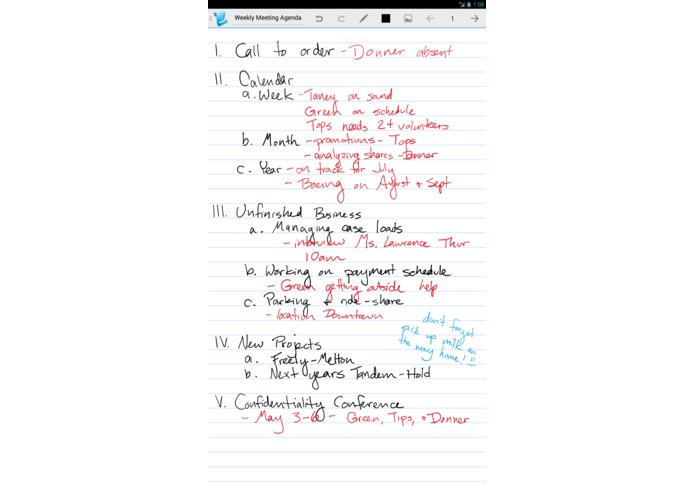 1:08
Weekly Meeting Agenda
1
I. Call to order - Donner absent
II. Calendar
a. Week - Taney on sand
Green on schedule
Tops needs 2+ volunteers
b. Month - promotions - Tops
- analyzing shares - Donner
c. Year - on track for July
- Boeing on August + Sept
III. Unfinished Business
a. Managing case loads
- interview Ms. Lawrence Thur
10am
b. Working on payment schedule
- Green getting outside help
c. Parking + ride-share
- location Downtown
don't forget
pick up milk on
the way home! !!
IV. New Projects
a. Freely-Melton
b. Next years Tandem-Hold
V. Confidentiality Conference
- May 3-6 - Green, Tips, + Donner